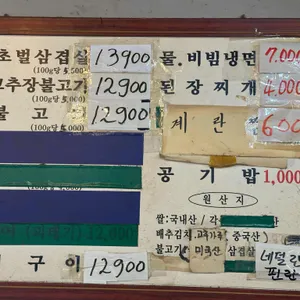 초벌삼겹살 13900
(100g당 5,500)
고추장불고기 12900
(100g당
불고 12900
구이 12900
물.비빔냉면 7.000
된장찌개 4.000
계란찜 600
공기밥 1,000
원산지
쌀:국내산 / 각
배추김치, 고추가루, 중국산)
불고기 미국산 삼겹살
네덜란
핀란